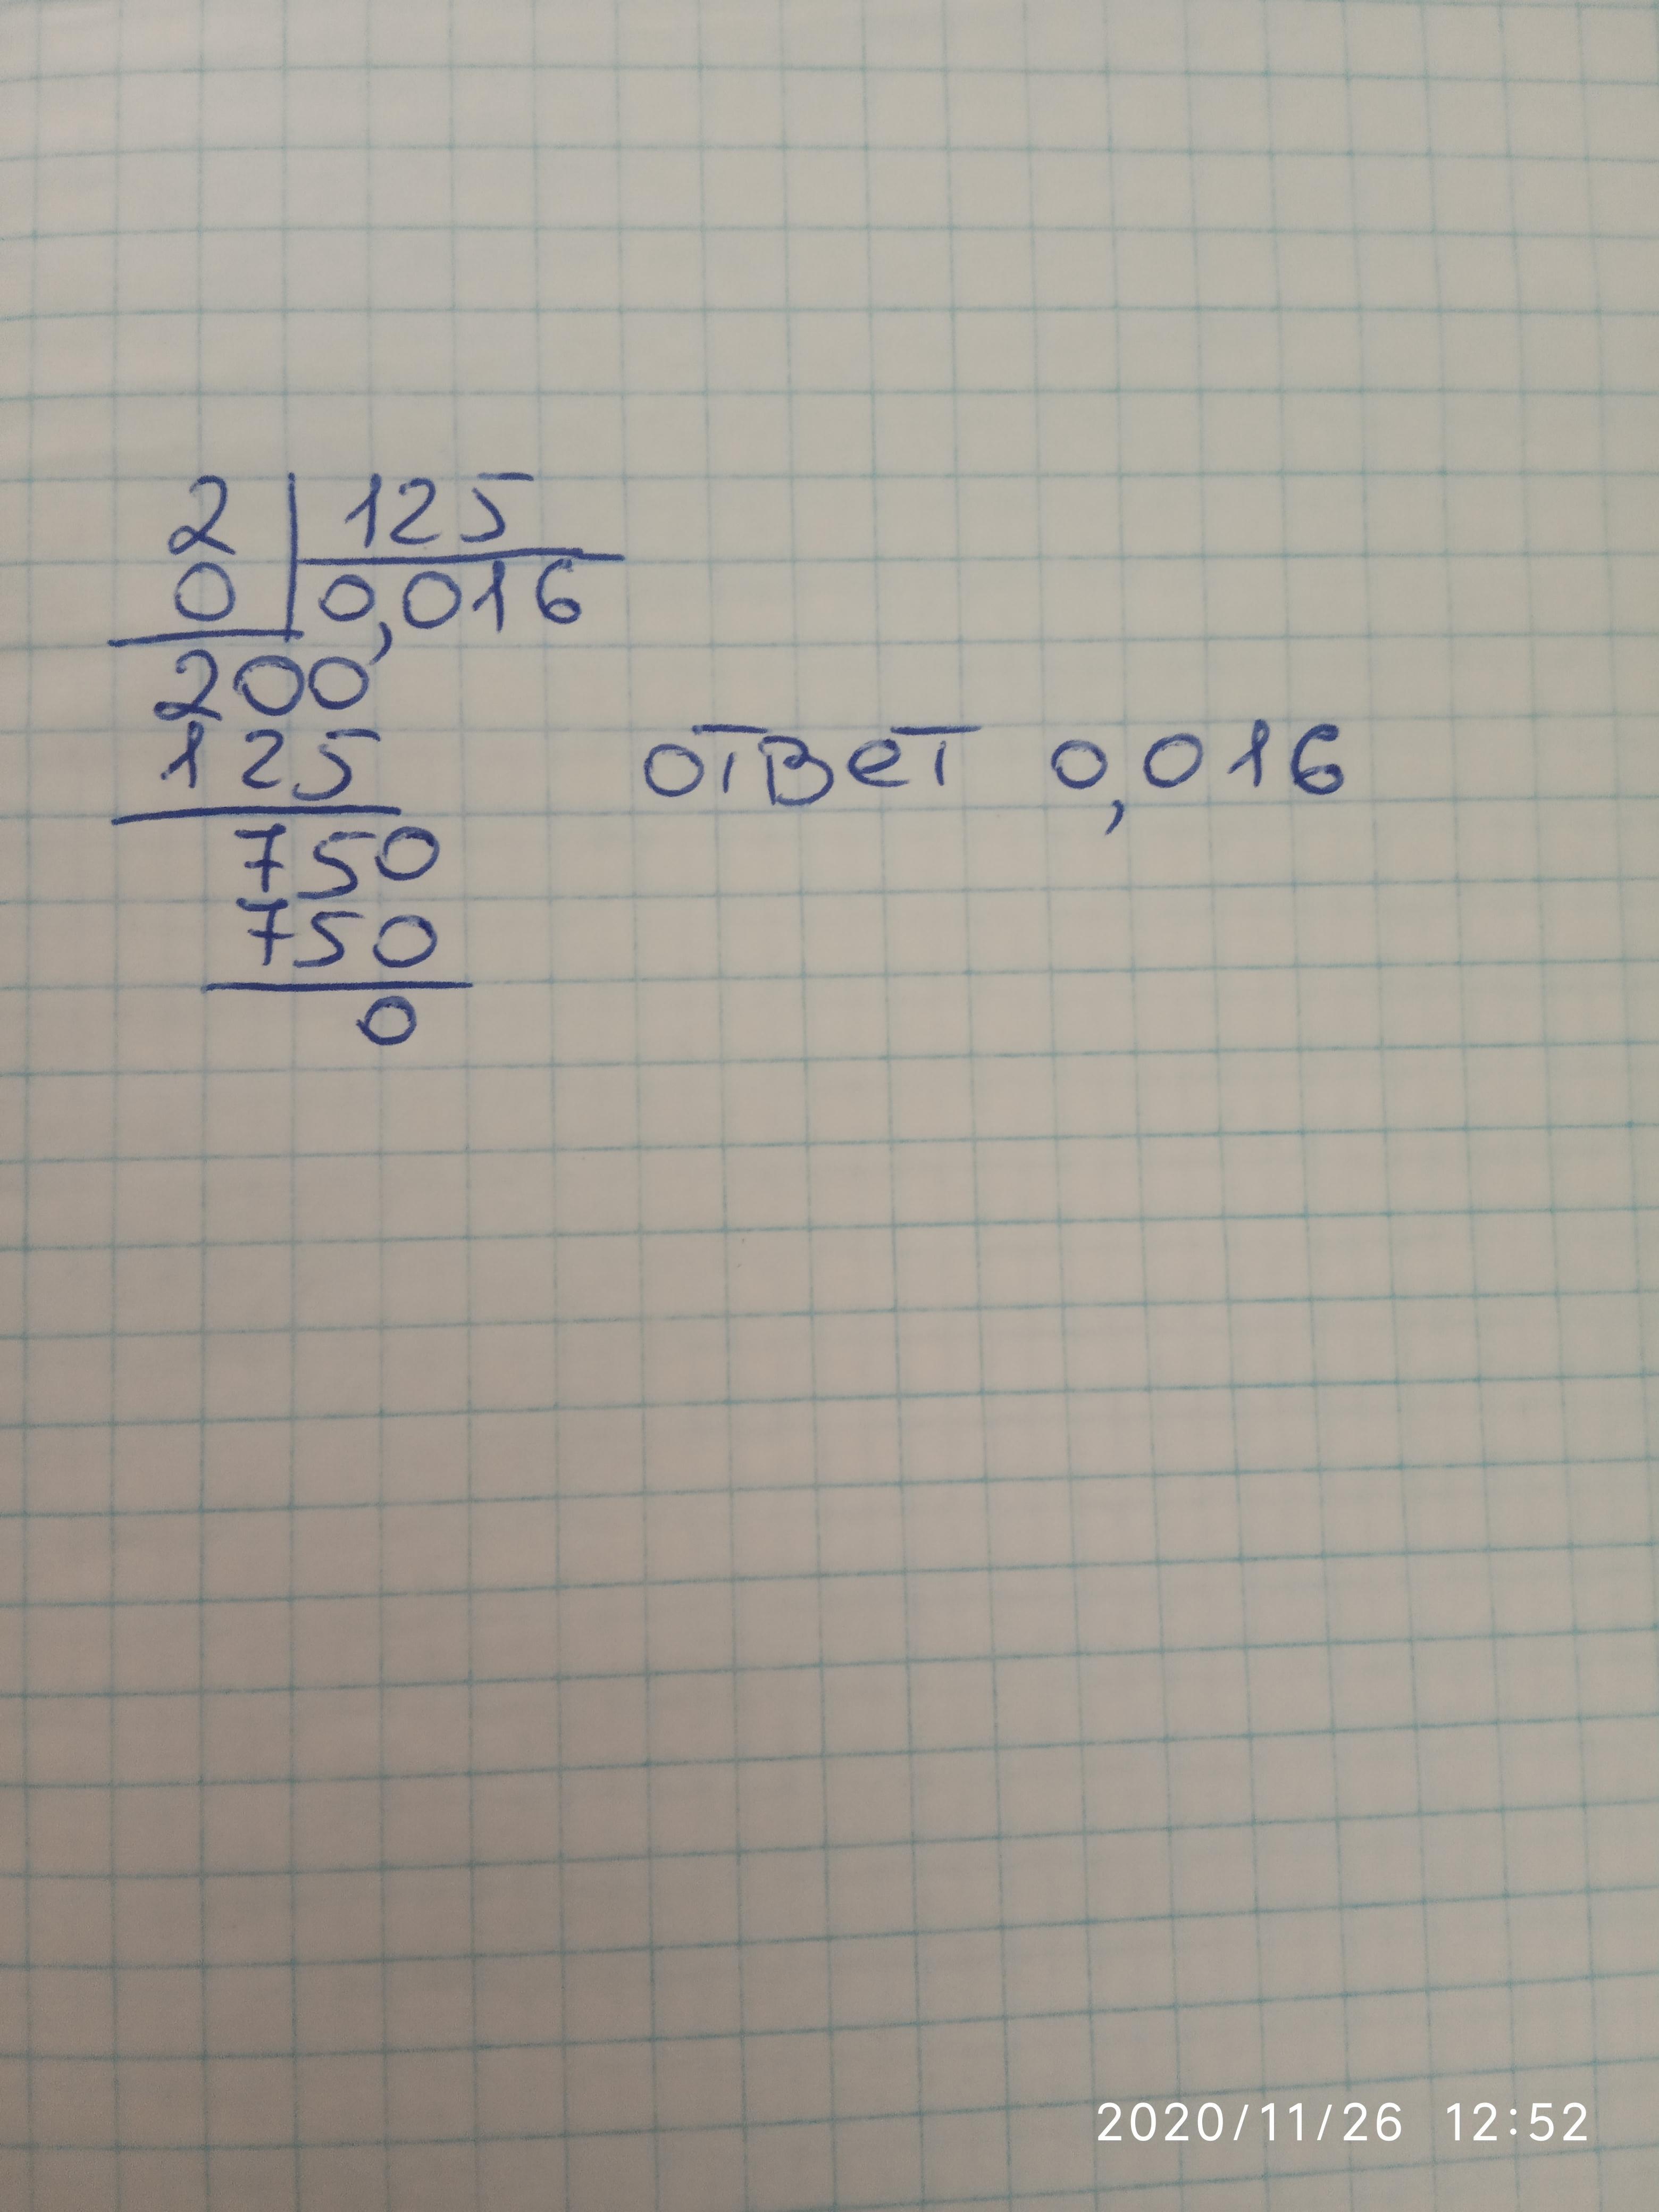 2 125
0 0,016
200
125
ответ 0,016
750
750
0
2020/11/26 12:52